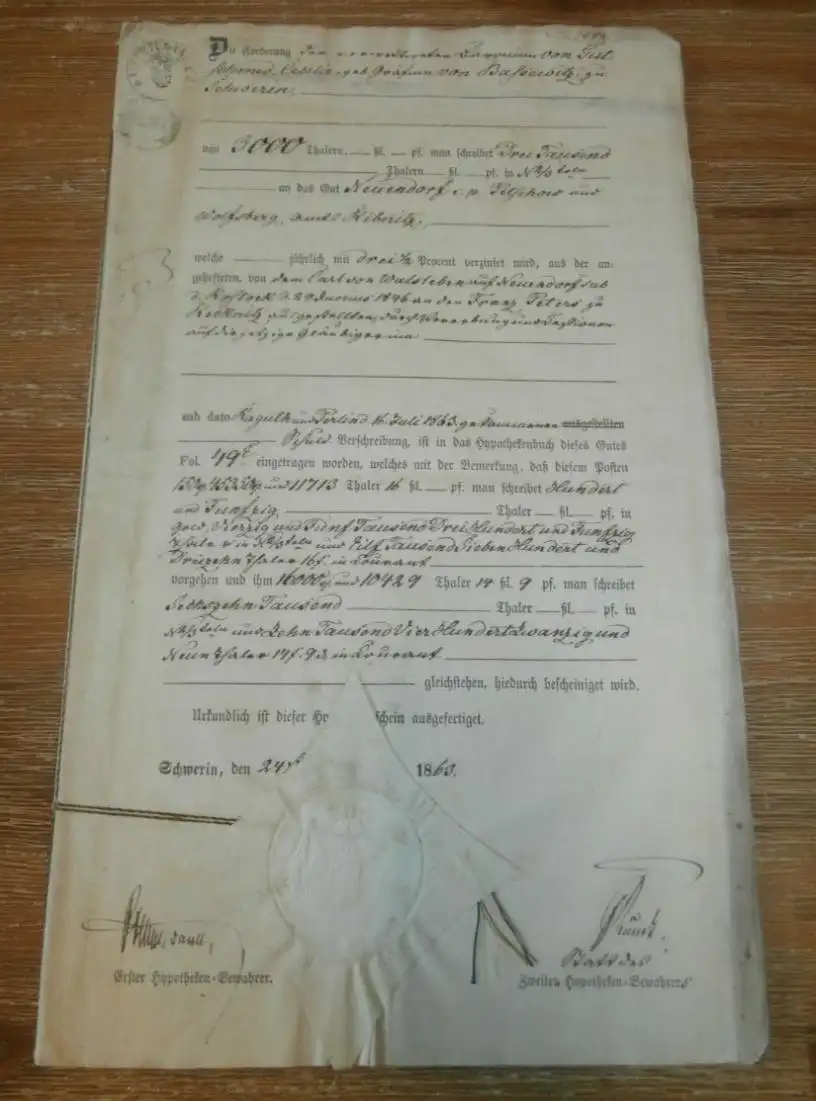 Die Forderung der verehelichten Baronin von
Cecilie geb. Gräfinn von Bassewitz, zu
Schwerin,
von 3000 Thalern, ßl. pf. man schreibet Drei Tausend
Thalern ßl. pf. in N 2/3 teln
an das Gut Neuendorf c. p. und
Wolfsberg, Amts Ribnitz,
welche jährlich mit drei 1/2 Procent verzinset wird, aus der an-
gehefteten, von dem Carl von Walsleben auf Neuendorf sub
d. Rostock d. 1846 an den Franz Peters zu
ausgestellten, durch Vererbung und Cessionen
auf die jetzige Gläubigerinn
sub dato 16 Juli 1863 ausgestellten
Schuld Verschreibung, ist in das Hypothekenbuch dieses Gutes
Fol. 49 eingetragen worden, welches mit der Bemerkung, daß diesem Posten
und 11713 Thaler 16 ßl. pf. man schreibet Hundert
und Funfzig Thaler ßl. pf. in
Gold, Vierzig und Fünf Tausend Drei Hundert und Funfzig
Thaler in N 2/3 teln und Eilf Tausend Sieben Hundert und
Dreizehn Thaler 16 ß. in Courant
vorgehen und ihm 16000 und 10429 Thaler 14 ßl. 9 pf. man schreibet
Sechszehn Tausend Thaler ßl. pf. in
N 2/3 teln und Zehn Tausend Vier Hundert Zwanzig und
Neun Thaler 14 ß. 9 d. in Courant
gleichstehen, hiedurch bescheiniget wird.
Urkundlich ist dieser Hy schein ausgefertiget.
Schwerin, den 24 1863.
Erster Hypotheken-Bewahrer. Zweiten Hypotheken-Bewahrers